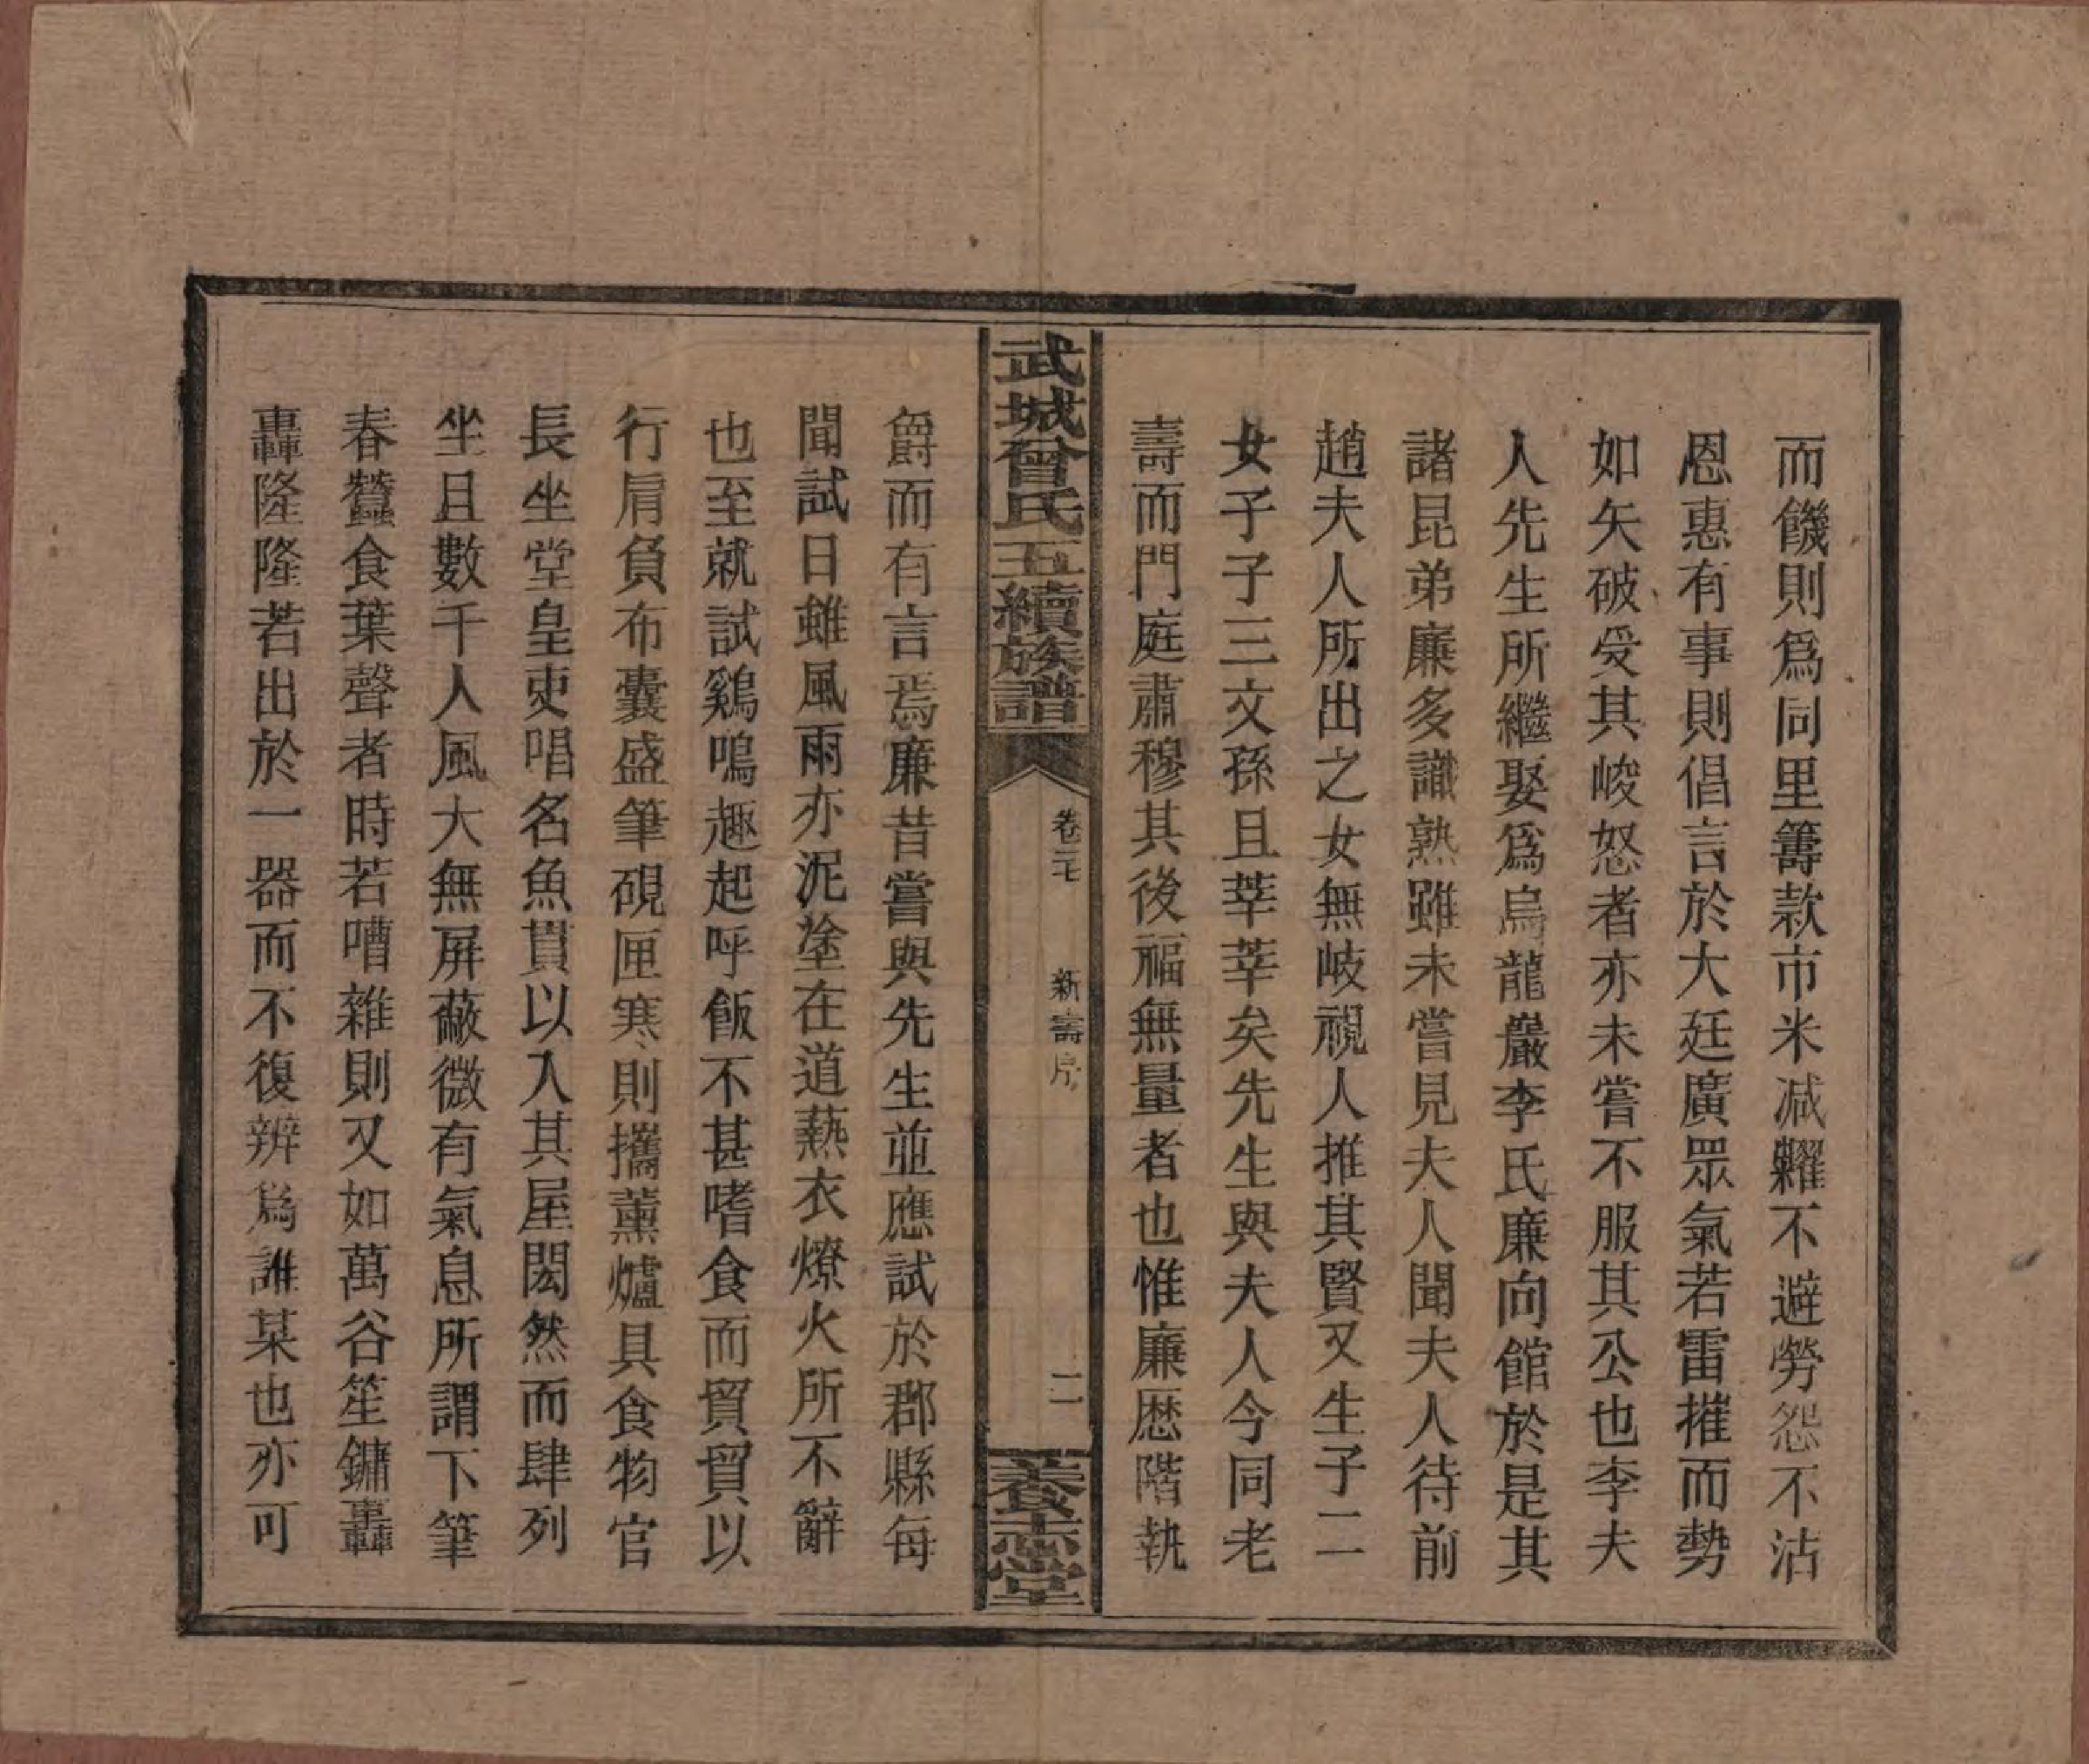 而饑則爲同里籌款市米减糶不避勞怨不沽
恩惠有事則倡言於大廷廣眾氣若雷摧而勢
如矢破受其峻怒者亦未嘗不服其公也李夫
人先生所繼娶爲烏龍巖李氏廉向館於是其
諸昆弟廉多識熟雖未嘗見夫人聞夫人待前
趙夫人所出之女無岐視人推其賢又生子二
女子子三文孫且莘莘矣先生與夫人今同老
壽而門庭肅穆其後福無量者也惟廉歴階執
武城曾氏五續族譜
卷三七
新壽序
二
養志堂
爵而有言焉廉昔嘗與先生並應試於郡縣每
聞試日雖風雨亦泥塗在道爇衣燎火所不辭
也至就試鷄鳴趣起呼飯不甚嗜食而貿貿以
行肩負布囊盛筆硯匣寒則攜薰爐具食物官
長坐堂皇吏唱名魚貫以入其屋閎然而肆列
坐且數千人風大無屏蔽微有氣息所謂下筆
春蠶食葉聲者時若嘈雜則又如萬谷笙鏞轟
轟隆隆若出於一器而不復辨爲誰某也亦可